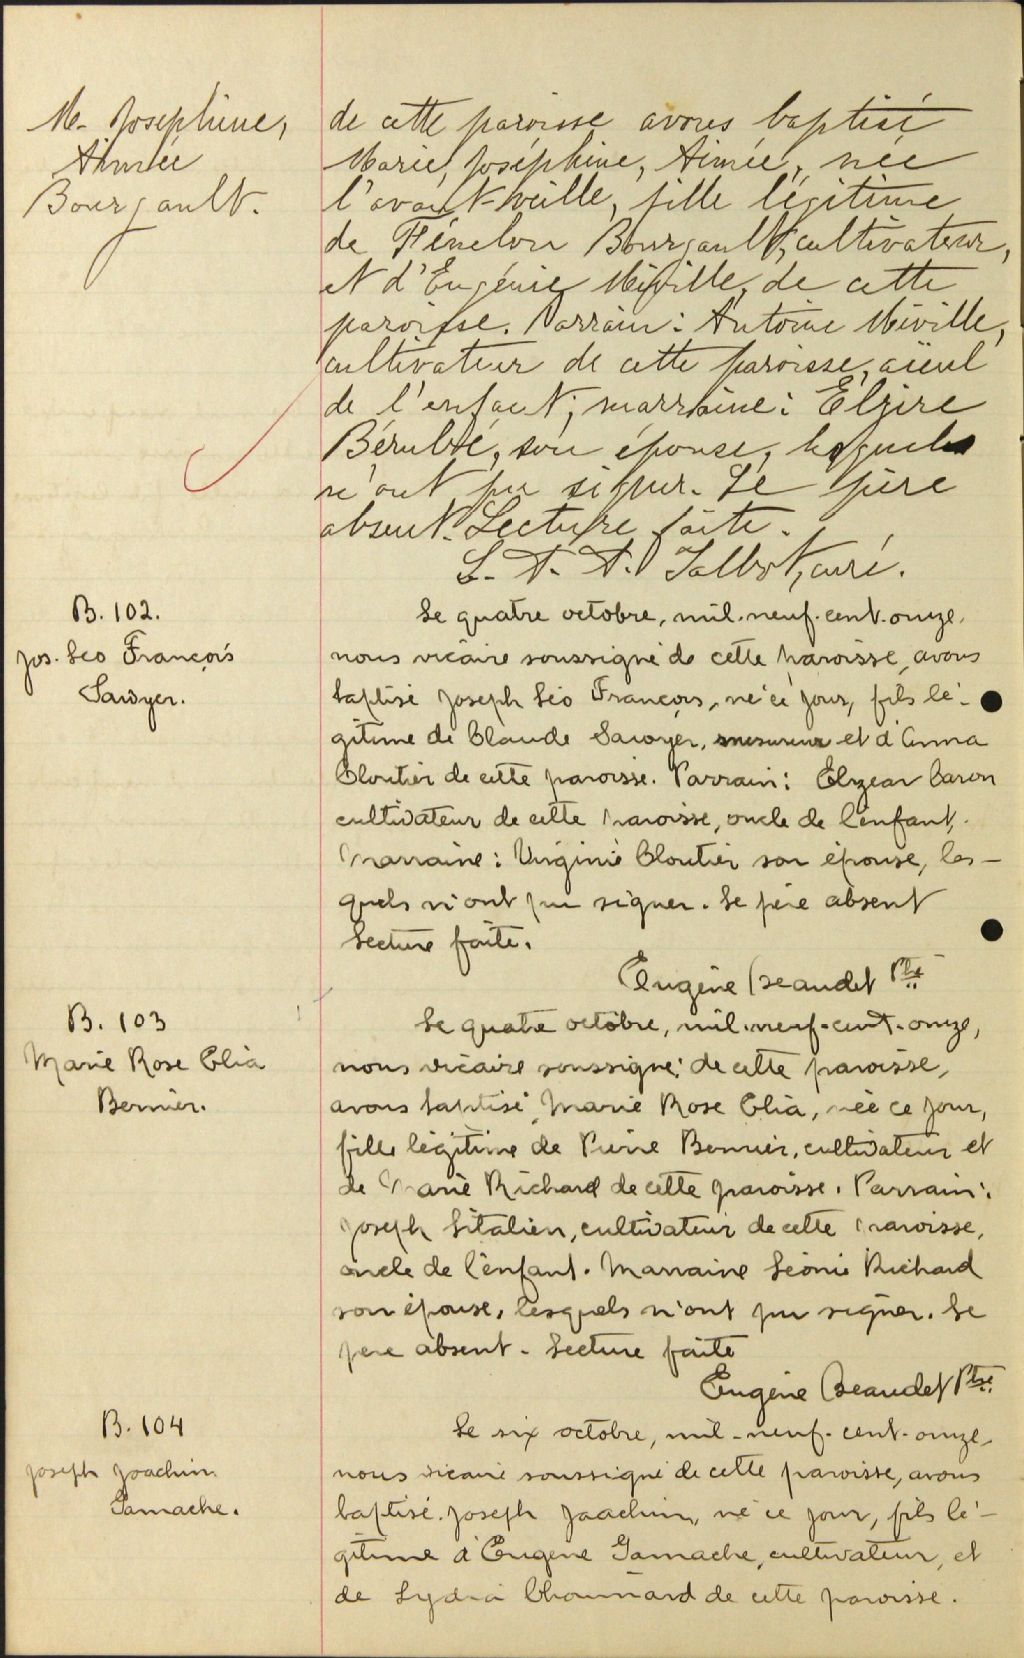 M. Joséphine,
Aimée
Bourgault.
de cette paroisse avons baptisé
Marie, Joséphine, Aimée, née
l'avant-veille, fille légitime
de Fénelon Bourgault, cultivateur,
et d'Eugénie Miville, de cette
paroisse. Parrain: Antoine Miville,
cultivateur de cette paroisse, aïeul
de l'enfant; marraine: Elzire
Bérubé, son épouse, lesquels
n'ont pu signer. Le père
absent. Lecture faite.
L. A. A. Talbot, curé.
B. 102.
Jos. Léo François
Sawyer.
Le quatre octobre, mil-neuf-cent-onze,
nous vicaire soussigné de cette paroisse, avons
baptisé Joseph Léo François, né ce jour, fils lé-
gitime de Claude Sawyer, mesureur et d'Anna
Cloutier de cette paroisse. Parrain: Elzear Caron
cultivateur de cette paroisse, oncle de l'enfant,
Marraine: Virginie Cloutier son épouse, les-
quels n'ont pu signer. Le père absent
Lecture faite.
Eugène Beaudet Ptre
B. 103
Marie Rose Clia
Bernier.
Le quatre octobre, mil-neuf-cent-onze,
nous vicaire soussigné de cette paroisse,
avons baptisé Marie Rose Clia, née ce jour,
fille légitime de Pierre Bernier, cultivateur et
de Marie Richard de cette paroisse. Parrain:
Joseph Litalien, cultivateur de cette paroisse,
oncle de l'enfant. Marraine Léonie Richard
son épouse, lesquels n'ont pu signer. Le
père absent. Lecture faite
Eugène Beaudet Ptre
B. 104
Joseph Joachim
Gamache.
Le six octobre, mil-neuf-cent-onze,
nous vicaire soussigné de cette paroisse, avons
baptisé Joseph Joachim, né ce jour, fils lé-
gitime d'Eugène Gamache, cultivateur, et
de Lydia Chouinard de cette paroisse.